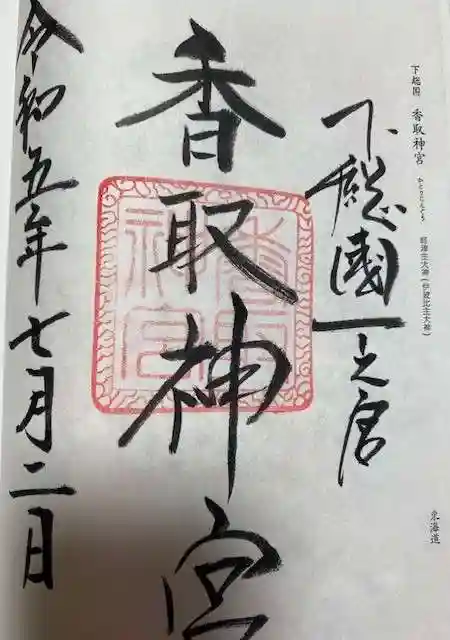 下総国 香取神宮 かとりじんぐう 経津主大神(伊波比主大神)
東海道
下総國一之宮
香取神宮
香取神宮
令和五年七月二日